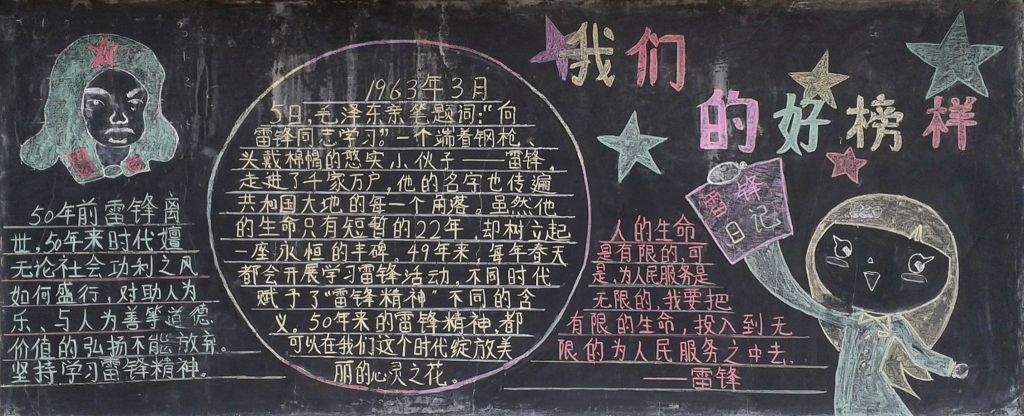 我们
的好榜样
50年前雷锋离
世,50年来时代嬗
无论社会功利之风
如何盛行,对助人为
乐、与人为善等道德
价值的弘扬不能放弃。
坚持学习雷锋精神。
1963年3月
5日,毛泽东亲笔题词:“向
雷锋同志学习”。一个端着钢枪、
头戴棉帽的憨实小伙子——雷锋,
走进了千家万户,他的名字也传遍
共和国大地的每一个角落。虽然他
的生命只有短暂的22年,却树立起
一座永恒的丰碑。49年来,每年春天
都会开展学习雷锋活动。不同时代
赋予了“雷锋精神”不同的含
义。50年来的雷锋精神,都
可以在我们这个时代绽放美
丽的心灵之花。
雷锋
日记
人的生命
是有限的,可
是,为人民服务是
无限的,我要把
有限的生命,投入到无
限的为人民服务之中去、
——雷锋